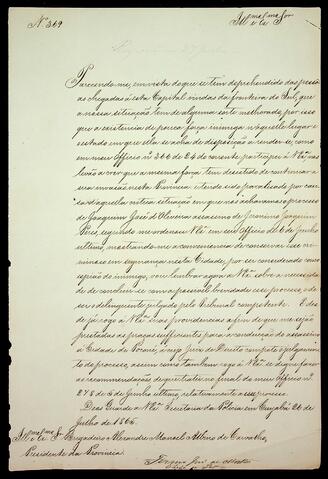 Nº 369
Illmo e Exmo Snr
Parecendo-me, em vista do que se tem deprehendido das pesso-
as chegadas á esta Capital vindas da fronteira do Sul, que
a nossa situação tem de alguma sorte melhorado, por isso
que a existencia de pouca força inimiga naquelle lugar e
o estado em que ella se acha de disposição a render-se, como
em meu Officio nº 366 de 24 do corrente participei a VExª, nos
levão a crer que a mesma força tem desistido de continuar a
sua invasão nesta Provincia, e tendo sido paralisado por cau-
sa daquella critica situação em que nos achavamos o processo
de Joaquim José de Oliveira assassino de Jeronimo Joaquim
Peres, segundo me ordenou VExª em seu Officio de 6 de Junho
ultimo, mostrando-me a conveniencia de conservar esse cri-
minoso em segurança nesta Cidade, por ser considerado como
espião do inimigo, vou lembrar agora á VExª sobre a necessida-
de de concluir-se com a possivel brevidade esse processo, e de
ser o delinquente julgado pelo Tribunal competente. E des-
de já rogo á VExª suas providencias afim de que me sejão
prestadas as praças sufficientes para a conducção do assassino
á Cidade de Poconé, a cujo Juiz de Direito compete o julgamen-
to do processo, assim como tambem rogo á VExª se digne fazer
as recommendações de que tratei no final do meu Officio nº
278 de 5 de Junho ultimo, relativamente a esse processo.
Deos Guarde a VExª. Secretaria da Policia em Cuyabá 26 de
Julho de 1866.
Illmo e Exmo Sr Brigadeiro Alexandre Manoel Albino de Carvalho,
Presidente da Provincia